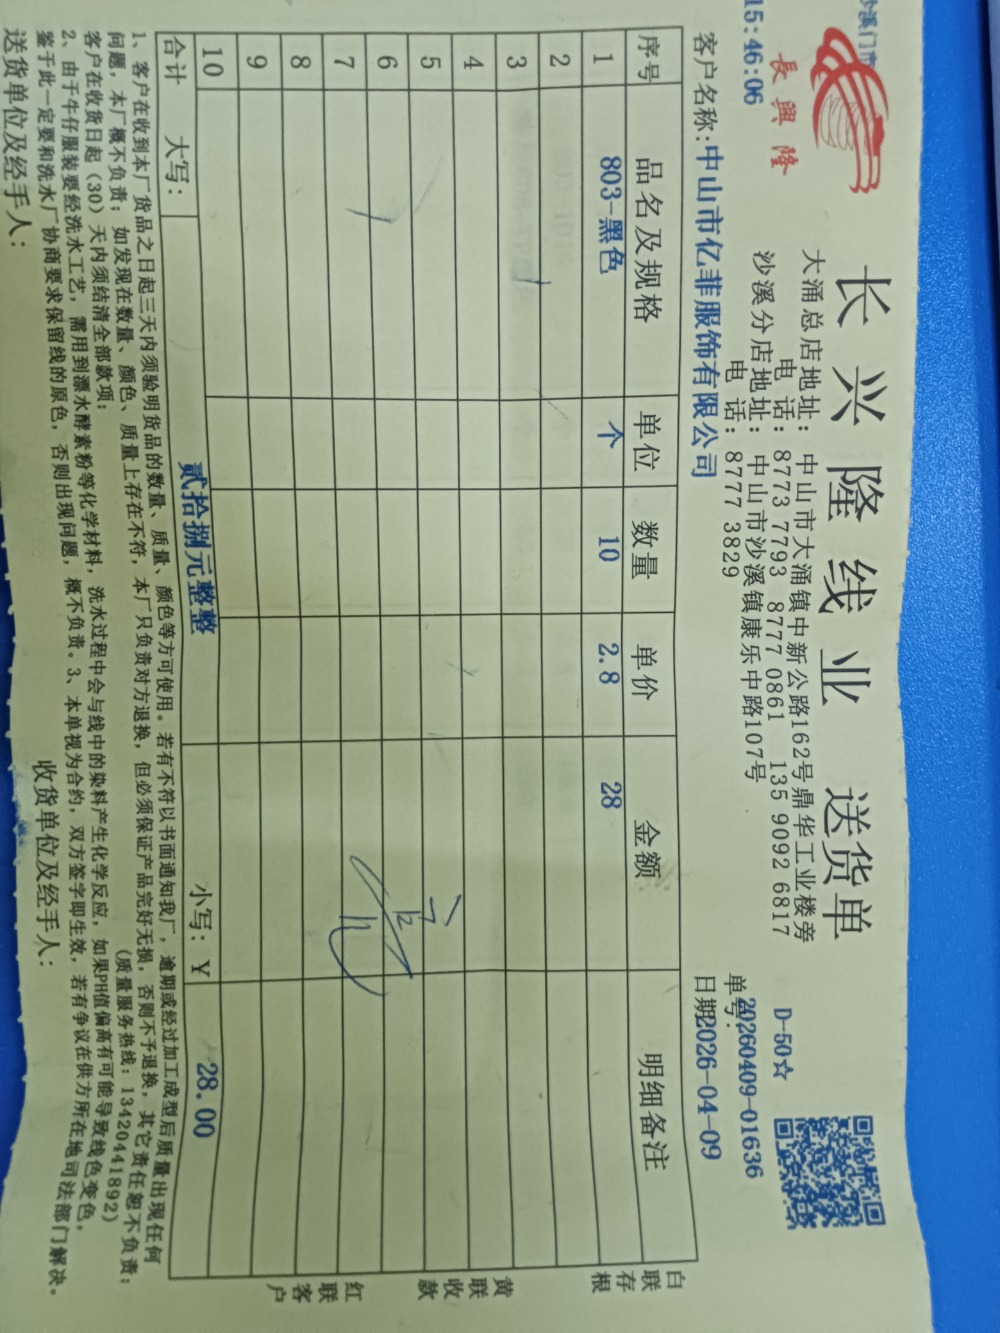 沙溪门市
15:46:06
長興隆
长兴隆线业 送货单
大涌总店地址：中山市大涌镇中新公路162号鼎华工业楼旁
电 话：8773 7793 8777 0861 135 9092 6817
沙溪分店地址：中山市沙溪镇康乐中路107号
电 话：8777 3829
D-50☆
单号：20260409-01636
客户名称：中山市亿菲服饰有限公司
日期2026-04-09
序号 品名及规格 单位 数量 单价 金额 明细备注
1 803-黑色 个 10 2.8 28
2
3
4
5
6
7
8
9
10
合计 大写： 贰拾捌元整整 小写：￥ 28.00
白联存根
黄联收款
红联客户
1、客户在收到本厂货品之日起三天内须验明货品的数量、质量、颜色等方可使用。若有不符以书面通知我厂，逾期或经过加工成型后质量出现任何
问题，本厂概不负责；如发现在数量、颜色、质量上存在不符，本厂只负责对方退换，但必须保证产品完好无损，否则不予退换，其它责任恕不负责；
客户在收货日起（30）天内须结清全部款项； （质量服务热线：13420441892）
2、由于牛仔服装要经洗水工艺，需用到漂水酵素粉等化学材料，洗水过程中会与线中的染料产生化学反应，如果PH值偏高有可能导致线色变色，
鉴于此一定要和洗水厂协商要求保留线的原色，否则出现问题，概不负责。3、本单视为合约，双方签字即生效，若有争议在供方所在地司法部门解决。
送货单位及经手人： 收货单位及经手人：